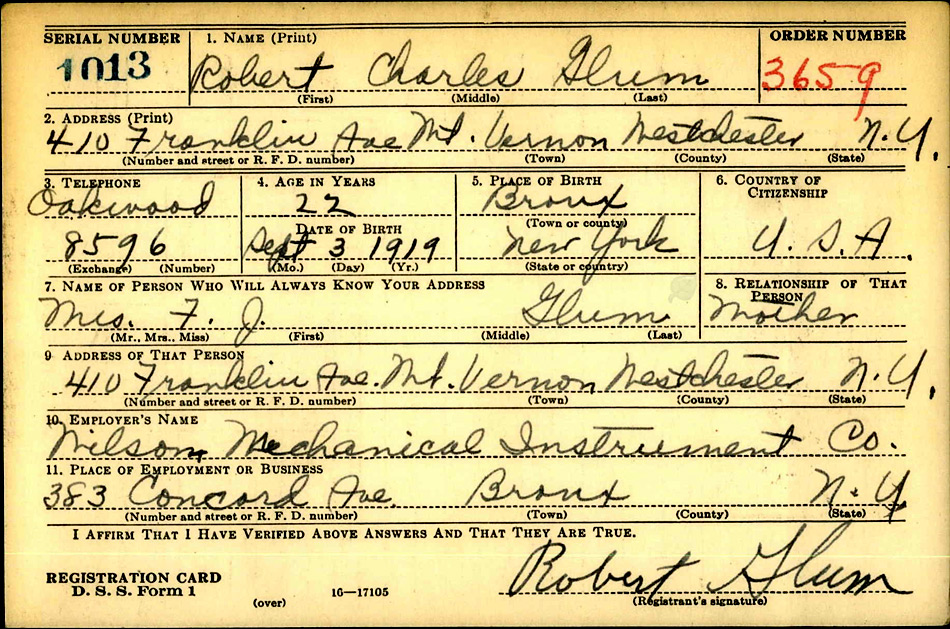 SERIAL NUMBER 1. NAME (Print) ORDER NUMBER
1013 Robert Charles Glum 3659
(First) (Middle) (Last)
2. ADDRESS (Print)
410 Franklin Ave Mt. Vernon Westchester N.Y.
(Number and street or R. F. D. number) (Town) (County) (State)
3. TELEPHONE 4. AGE IN YEARS 5. PLACE OF BIRTH 6. COUNTRY OF CITIZENSHIP
Oakwood 22 Bronx
DATE OF BIRTH (Town or county)
8596 Sept 3 1919 New York U.S.A.
(Exchange) (Number) (Mo.) (Day) (Yr.) (State or country)
7. NAME OF PERSON WHO WILL ALWAYS KNOW YOUR ADDRESS 8. RELATIONSHIP OF THAT PERSON
Mrs. F. J. Glum Mother
(Mr., Mrs., Miss) (First) (Middle) (Last)
9 ADDRESS OF THAT PERSON
410 Franklin Ave. Mt. Vernon Westchester N.Y.
(Number and street or R. F. D. number) (Town) (County) (State)
10. EMPLOYER'S NAME
Wilson Mechanical Instrument Co.
11. PLACE OF EMPLOYMENT OR BUSINESS
383 Concord Ave. Bronx N.Y
(Number and street or R. F. D. number) (Town) (County) (State)
I AFFIRM THAT I HAVE VERIFIED ABOVE ANSWERS AND THAT THEY ARE TRUE.
REGISTRATION CARD
D. S. S. Form 1 Robert Glum
(over) 16—17105 (Registrant's signature)